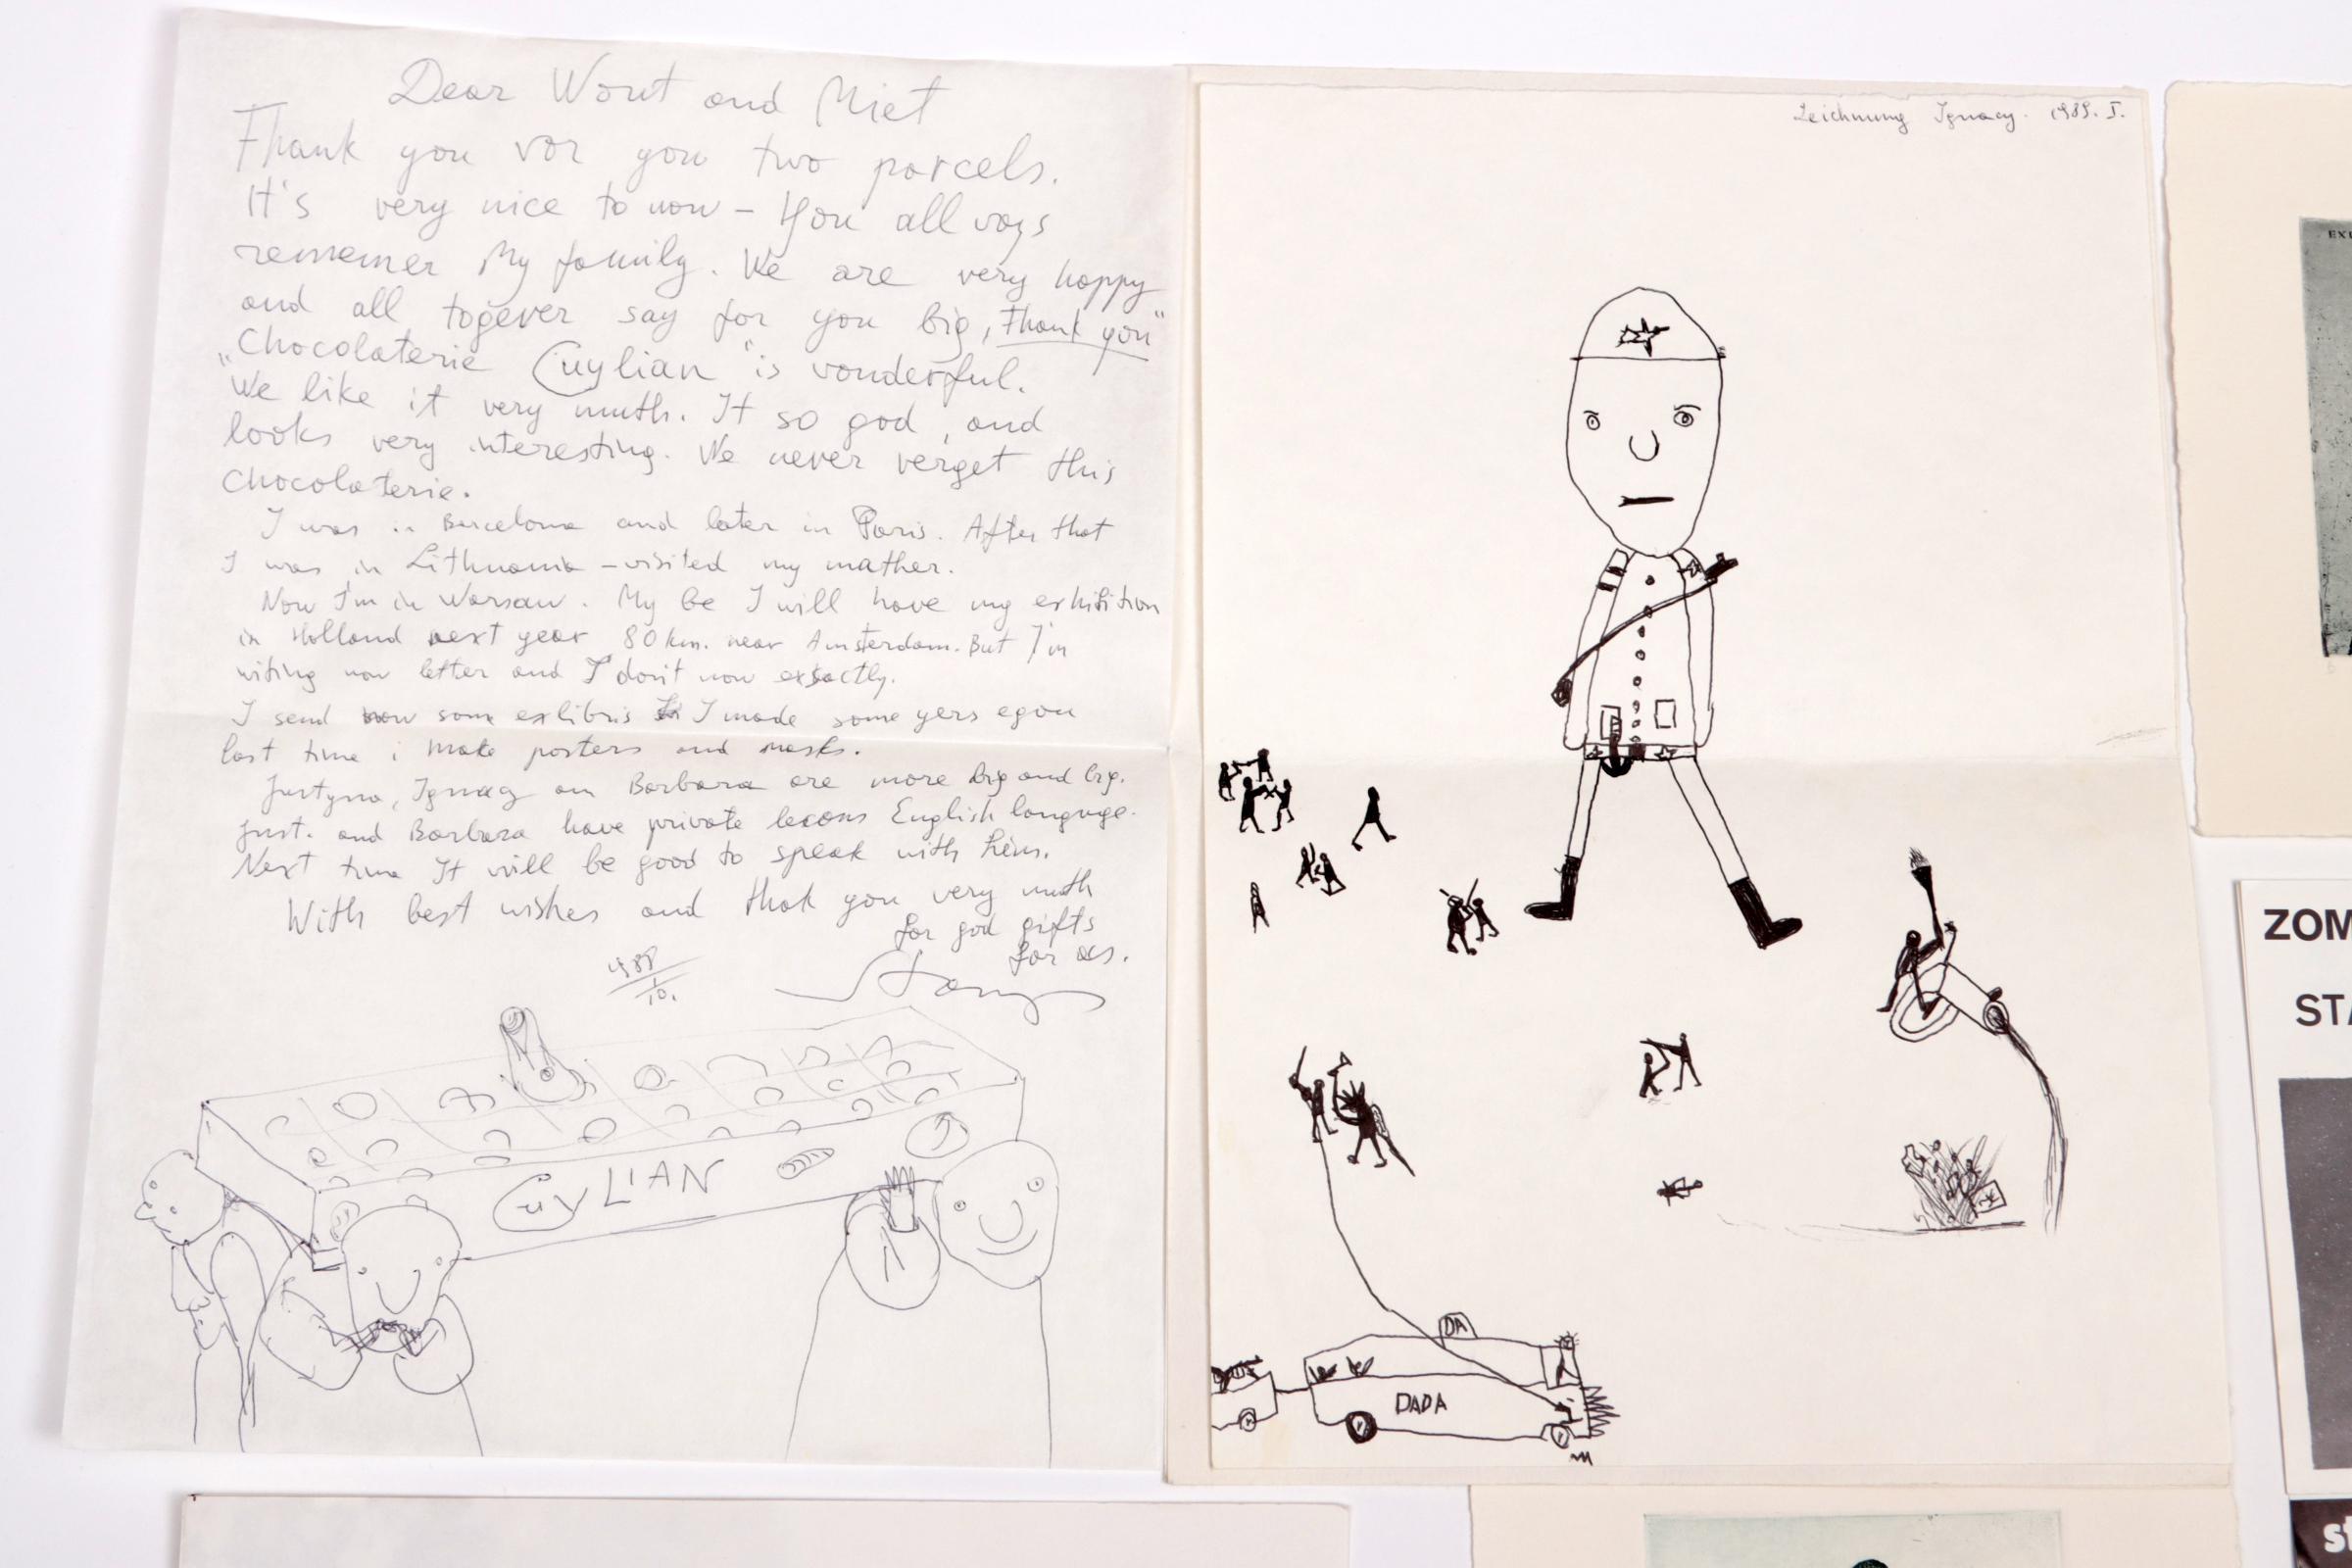 Dear Wout and Miet
Thank you vor you two parcels.
It's very nice to now – You all vays
rememer My family. We are very happy
and all togever say for you big „Thank you"
„Chocolaterie Guylian" is vonderful.
We like it very muth. It so god, and
looks very interesting. We never verget this
Chocolaterie.
I was in Barcelona and later in Paris. After that
I was in Lithuania – visited my mather.
Now I'm in Warsaw. My be I will have my exhibition
in Holland next year 80 km. near Amsterdam. But I'm
witing now letter and I don't now exactly.
I send now some exlibris I made some yers egou
last time i make posters and masks.
Justyna, Ignacy an Barbara are more big and big.
Just. and Barbara have private lecons English languge.
Next time It will be good to speak with him.
With best wishes and thak you very muth
for god gifts
for as.
1988
10.
Stasys
GUYLIAN
Zeichnung Ignacy. 1989. I.
DA
DADA
EXL
ZOM
STA
st